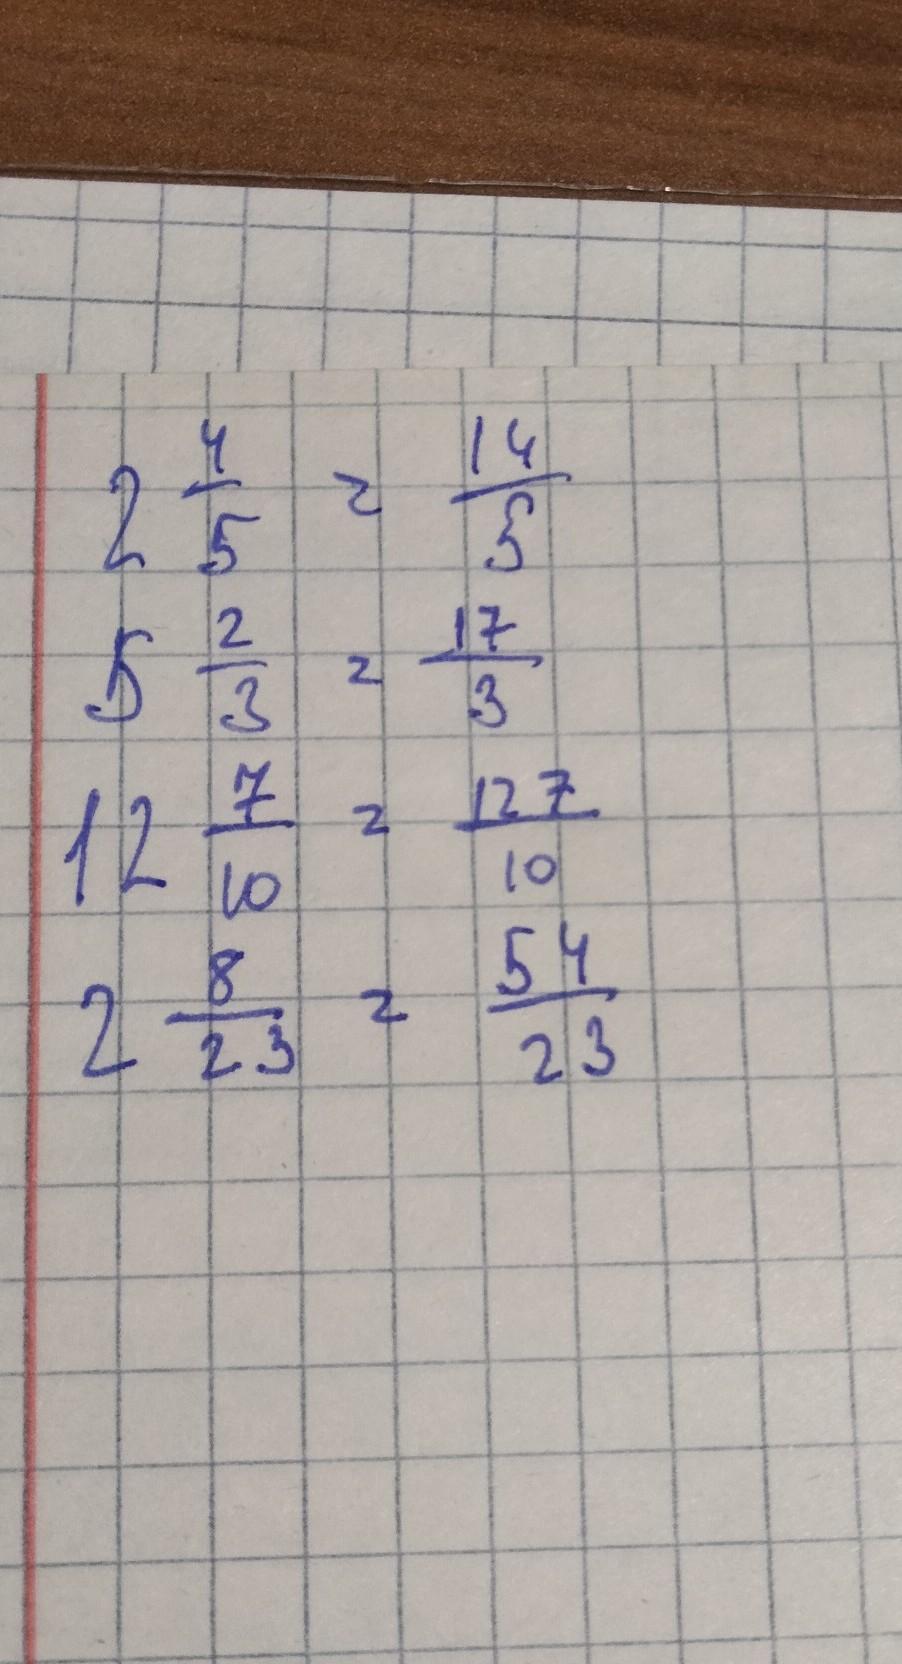 2 4/5 = 14/5
5 2/3 = 17/3
12 7/10 = 127/10
2 8/23 = 54/23